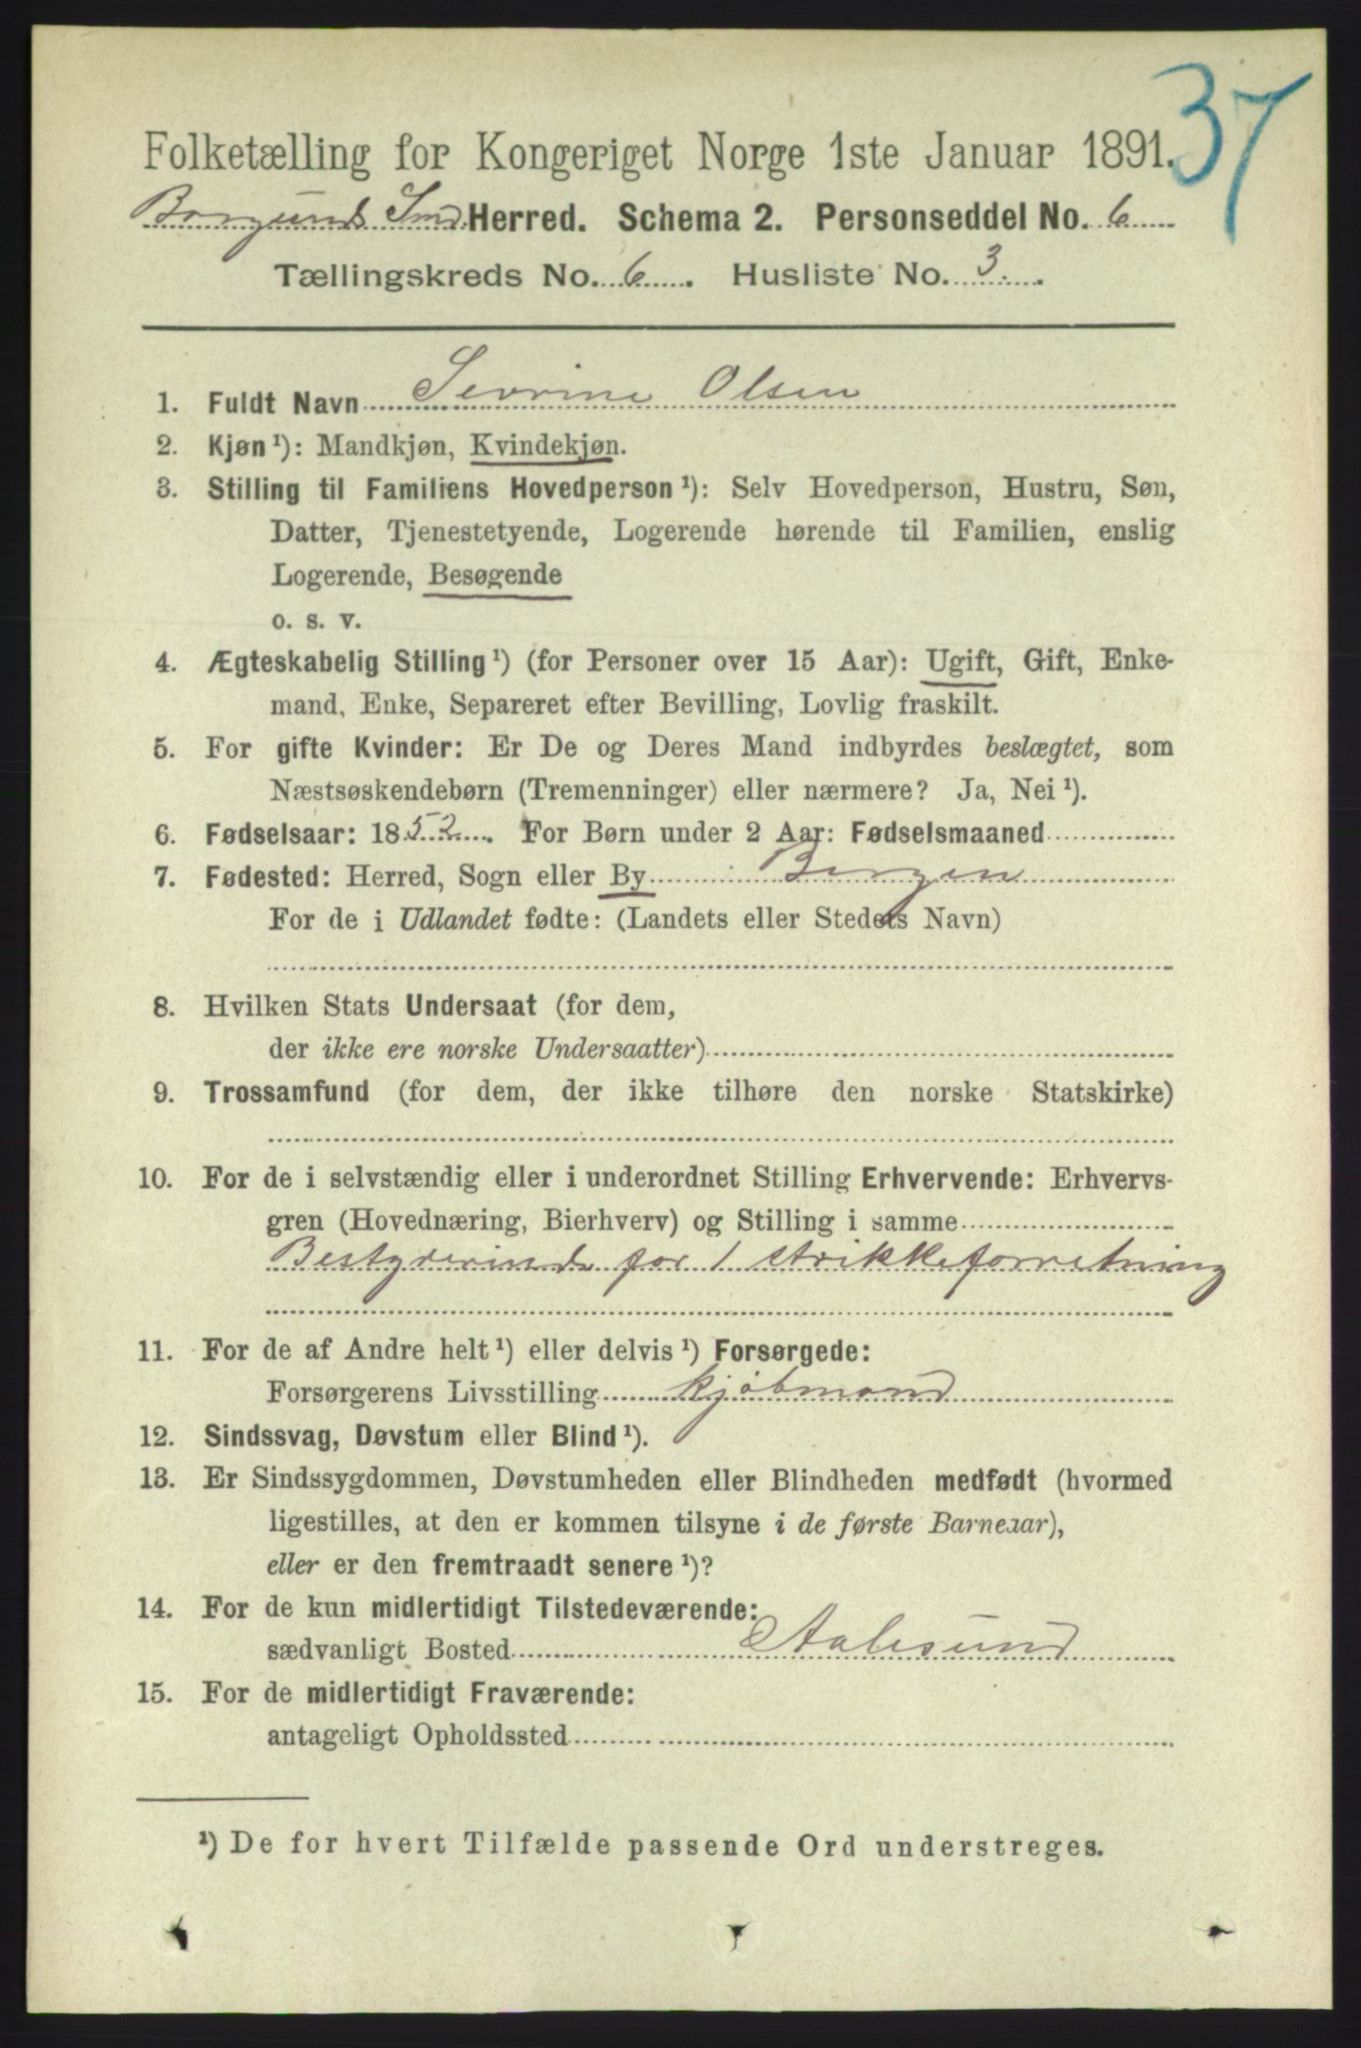 37
Folketælling for Kongeriget Norge 1ste Januar 1891.
Borgund Smd. Herred. Schema 2. Personseddel No. 6
Tællingskreds No. 6. Husliste No. 3.
1. Fuldt Navn Sevrine Olsen
2. Kjøn¹): Mandkjøn, Kvindekjøn.
3. Stilling til Familiens Hovedperson¹): Selv Hovedperson, Hustru, Søn,
Datter, Tjenestetyende, Logerende hørende til Familien, enslig
Logerende, Besøgende
o. s. v.
4. Ægteskabelig Stilling¹) (for Personer over 15 Aar): Ugift, Gift, Enke-
mand, Enke, Separeret efter Bevilling, Lovlig fraskilt.
5. For gifte Kvinder: Er De og Deres Mand indbyrdes beslægtet, som
Næstsøskendebørn (Tremenninger) eller nærmere? Ja, Nei¹).
6. Fødselsaar: 1852. For Børn under 2 Aar: Fødselsmaaned
7. Fødested: Herred, Sogn eller By Bergen
For de i Udlandet fødte: (Landets eller Stedets Navn)
8. Hvilken Stats Undersaat (for dem,
der ikke ere norske Undersaatter)
9. Trossamfund (for dem, der ikke tilhøre den norske Statskirke)
10. For de i selvstændig eller i underordnet Stilling Erhvervende: Erhvervs-
gren (Hovednæring, Bierhverv) og Stilling i samme
Bestyrerinde for 1 strikkeforretning
11. For de af Andre helt¹) eller delvis¹) Forsørgede:
Forsørgerens Livsstilling kjøbmand
12. Sindssvag, Døvstum eller Blind¹).
13. Er Sindssygdommen, Døvstumheden eller Blindheden medfødt (hvormed
ligestilles, at den er kommen tilsyne i de første Barneaar),
eller er den fremtraadt senere¹)?
14. For de kun midlertidigt Tilstedeværende:
sædvanligt Bosted Aalesund
15. For de midlertidigt Fraværende:
antageligt Opholdssted
¹) De for hvert Tilfælde passende Ord understreges.